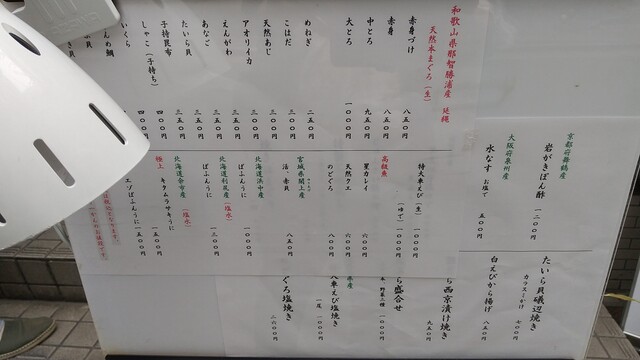 京都府舞鶴産
岩がきぽん酢 一二〇〇円
大阪府泉州産
水なす お塩で 五〇〇円
たいら貝磯辺焼き
カラスミかけ 七〇〇円
白えびから揚げ 八五〇円
和歌山県那智勝浦産 延縄
天然本まぐろ（生）
赤身づけ 八五〇円
赤身 八五〇円
中とろ 九五〇円
大とろ 一〇〇〇円
めねぎ 二五〇円
こはだ 三〇〇円
天然あじ 三〇〇円
アオリイカ 三〇〇円
えんがわ 三五〇円
あなご 三五〇円
たいら貝 三五〇円
子持昆布 三〇〇円
しゃこ（子持ち） 四〇〇円
いくら 四〇〇円
特大車えび（生） 一〇〇〇円
（ゆで） 一〇〇〇円
高級魚
星カレイ 六〇〇円
天然クエ 六〇〇円
のどぐろ 八〇〇円
宮城県閖上産
活、赤貝 八五〇円
北海道浜中産
ばふんうに
北海道利尻産（塩水）
ばふんうに 一三〇〇円
北海道余市産（塩水）
キタムラサキうに 一五〇〇円
極上
エゾばふんうに 一五〇〇円
西京漬け焼き 九五〇円
盛合せ
車えび塩焼き
一尾 一〇〇〇円
ぐろ塩焼き 二六〇〇円